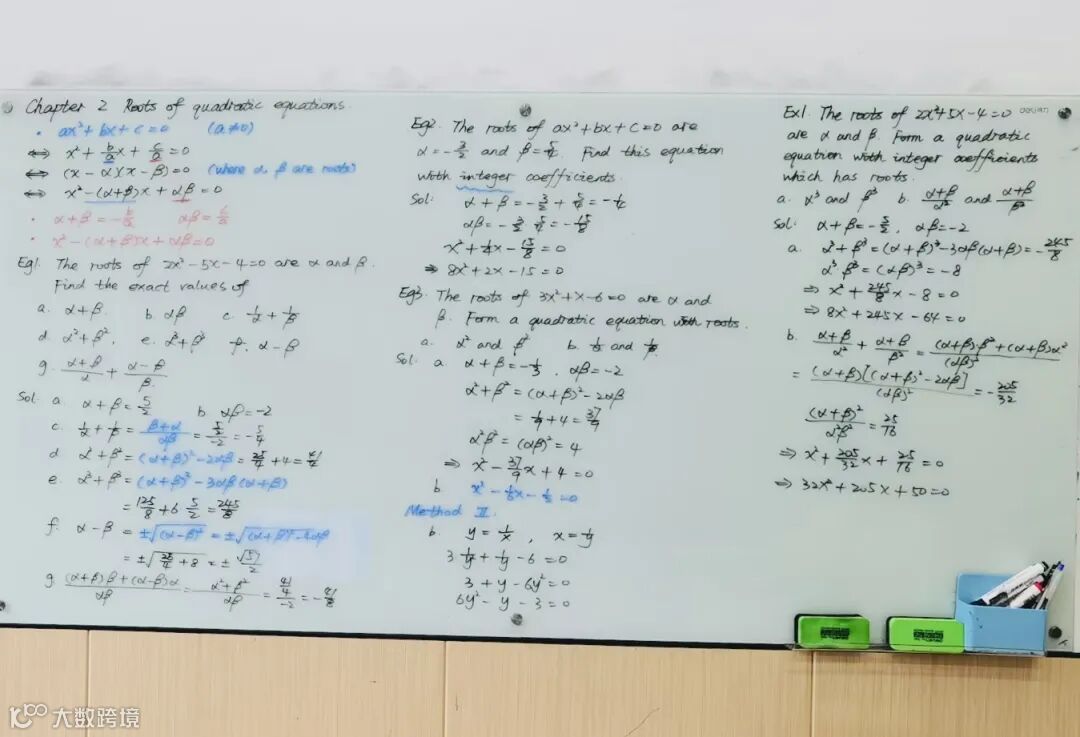 Chapter 2 Roots of quadratic equations.
• ax² + bx + c = 0 (a≠0)
⇔ x² + b/a x + c/a = 0
⇔ (x - α)(x - β) = 0 (where α β are roots)
⇔ x² - (α+β)x + αβ = 0
• α+β = -b/a αβ = c/a
• x² - (α+β)x + αβ = 0
Eg1. The roots of 2x² - 5x - 4 = 0 are α and β.
Find the exact values of
a. α+β. b. αβ c. 1/α + 1/β
d. α²+β². e. α³+β³ f. α-β
g. (α+β)/α + (α-β)/β
Sol. a. α+β = 5/2 b. αβ = -2
c. 1/α + 1/β = (β+α)/αβ = (5/2)/-2 = -5/4
d α²+β² = (α+β)² - 2αβ = 25/4 + 4 = 41/4
e. α³+β³ = (α+β)³ - 3αβ(α+β)
= 125/8 + 6 5/2 = 245/8
f. α-β = ±√(α-β)² = ±√(α+β)²-4αβ
= ±√25/4+8 = ± √57/2
g. ((α+β)β + (α-β)α)/αβ = (α²+β²)/αβ = (41/4)/-2 = -41/8
Eg2. The roots of ax² + bx + c = 0 are
α = -3/2 and β = 5/4. Find this equation
with integer coefficients.
Sol: α+β = -3/2 + 5/4 = -1/4
αβ = -3/2 · 5/4 = -15/8
x² + 1/4x - 15/8 = 0
⇒ 8x² + 2x - 15 = 0
Eg3. The roots of 3x² + x - 6 = 0 are α and
β. Form a quadratic equation with roots.
a. α² and β² b. 1/α and 1/β.
Sol. a. α+β = -1/3, αβ = -2
α²+β² = (α+β)² - 2αβ
= 1/9 + 4 = 37/9
α²β² = (αβ)² = 4
⇒ x² - 37/9 x + 4 = 0
b x² - 1/6x - 1/2 = 0
Method II.
b. y = 1/x, x = 1/y
3 1/y² + 1/y - 6 = 0
3 + y - 6y² = 0
6y² - y - 3 = 0
Ex1. The roots of 2x² + 5x - 4 = 0
are α and β. Form a quadratic
equation with integer coefficients
which has roots.
a. α³ and β³ b. (α+β)/α² and (α+β)/β²
Sol: α+β = -5/2, αβ = -2
a. α³+β³ = (α+β)³ - 3αβ(α+β) = -245/8
α³β³ = (αβ)³ = -8
⇒ x² + 245/8 x - 8 = 0
⇒ 8x² + 245x - 64 = 0
b. (α+β)/α² + (α+β)/β² = ((α+β)β² + (α+β)α²)/(αβ)²
= (α+β)[(α+β)² - 2αβ]/(αβ)² = -205/32
(α+β)²/α²β² = 25/16
⇒ x² + 205/32 x + 25/16 = 0
⇒ 32x² + 205x + 50 = 0
大数跨境